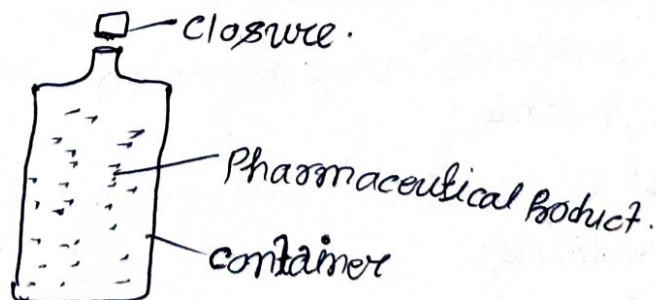 closure.
Pharmaceutical Product.
container